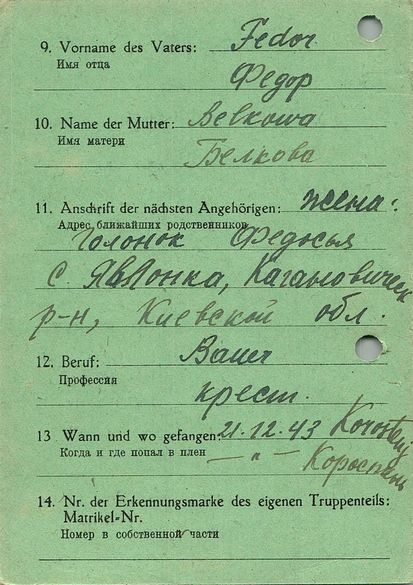 9. Vorname des Vaters: Fedor
Имя отца
Федор
10. Name der Mutter: Belkowa
Имя матери
Белкова
11. Anschrift der nächsten Angehörigen: жена:
Адрес ближайших родственников
Голонок Федосья
с. Яблонка, Кагановическ
р-н, Киевской обл.
12. Beruf: Bauer
Профессия
крест.
13 Wann und wo gefangen: 21.12.43
Когда и где попал в плен — " — Коростень
14. Nr. der Erkennungsmarke des eigenen Truppenteils:
Matrikel-Nr.
Номер в собственной части